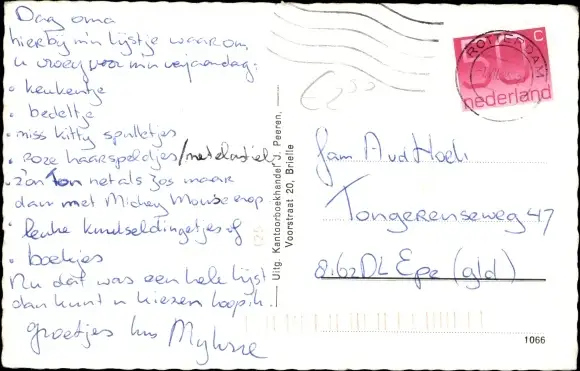 Dag oma
hierbij m'n lijstje waarom
u vroeg voor m'n verjaardag:
• keukentje
• bedeltje
• miss kitty spulletjes
• roze haarspeldjes/met elastiek
• z'on Ton net als Zos maar
dan met Mickey Mouse erop
• leuke knutseldingetjes of
• boekjes
Nu dat was een hele lijst
dan kunt u kiezen hoop ik.
groetjes kus
Uitg. Kantoorboekhandel v. Peeren,
Voorstraat 20, Brielle
ROTTERDAM C
nederland
€2,50
Fam A vd Hoek
Tongerenseweg 47
8162DL Epe (gld)
1066